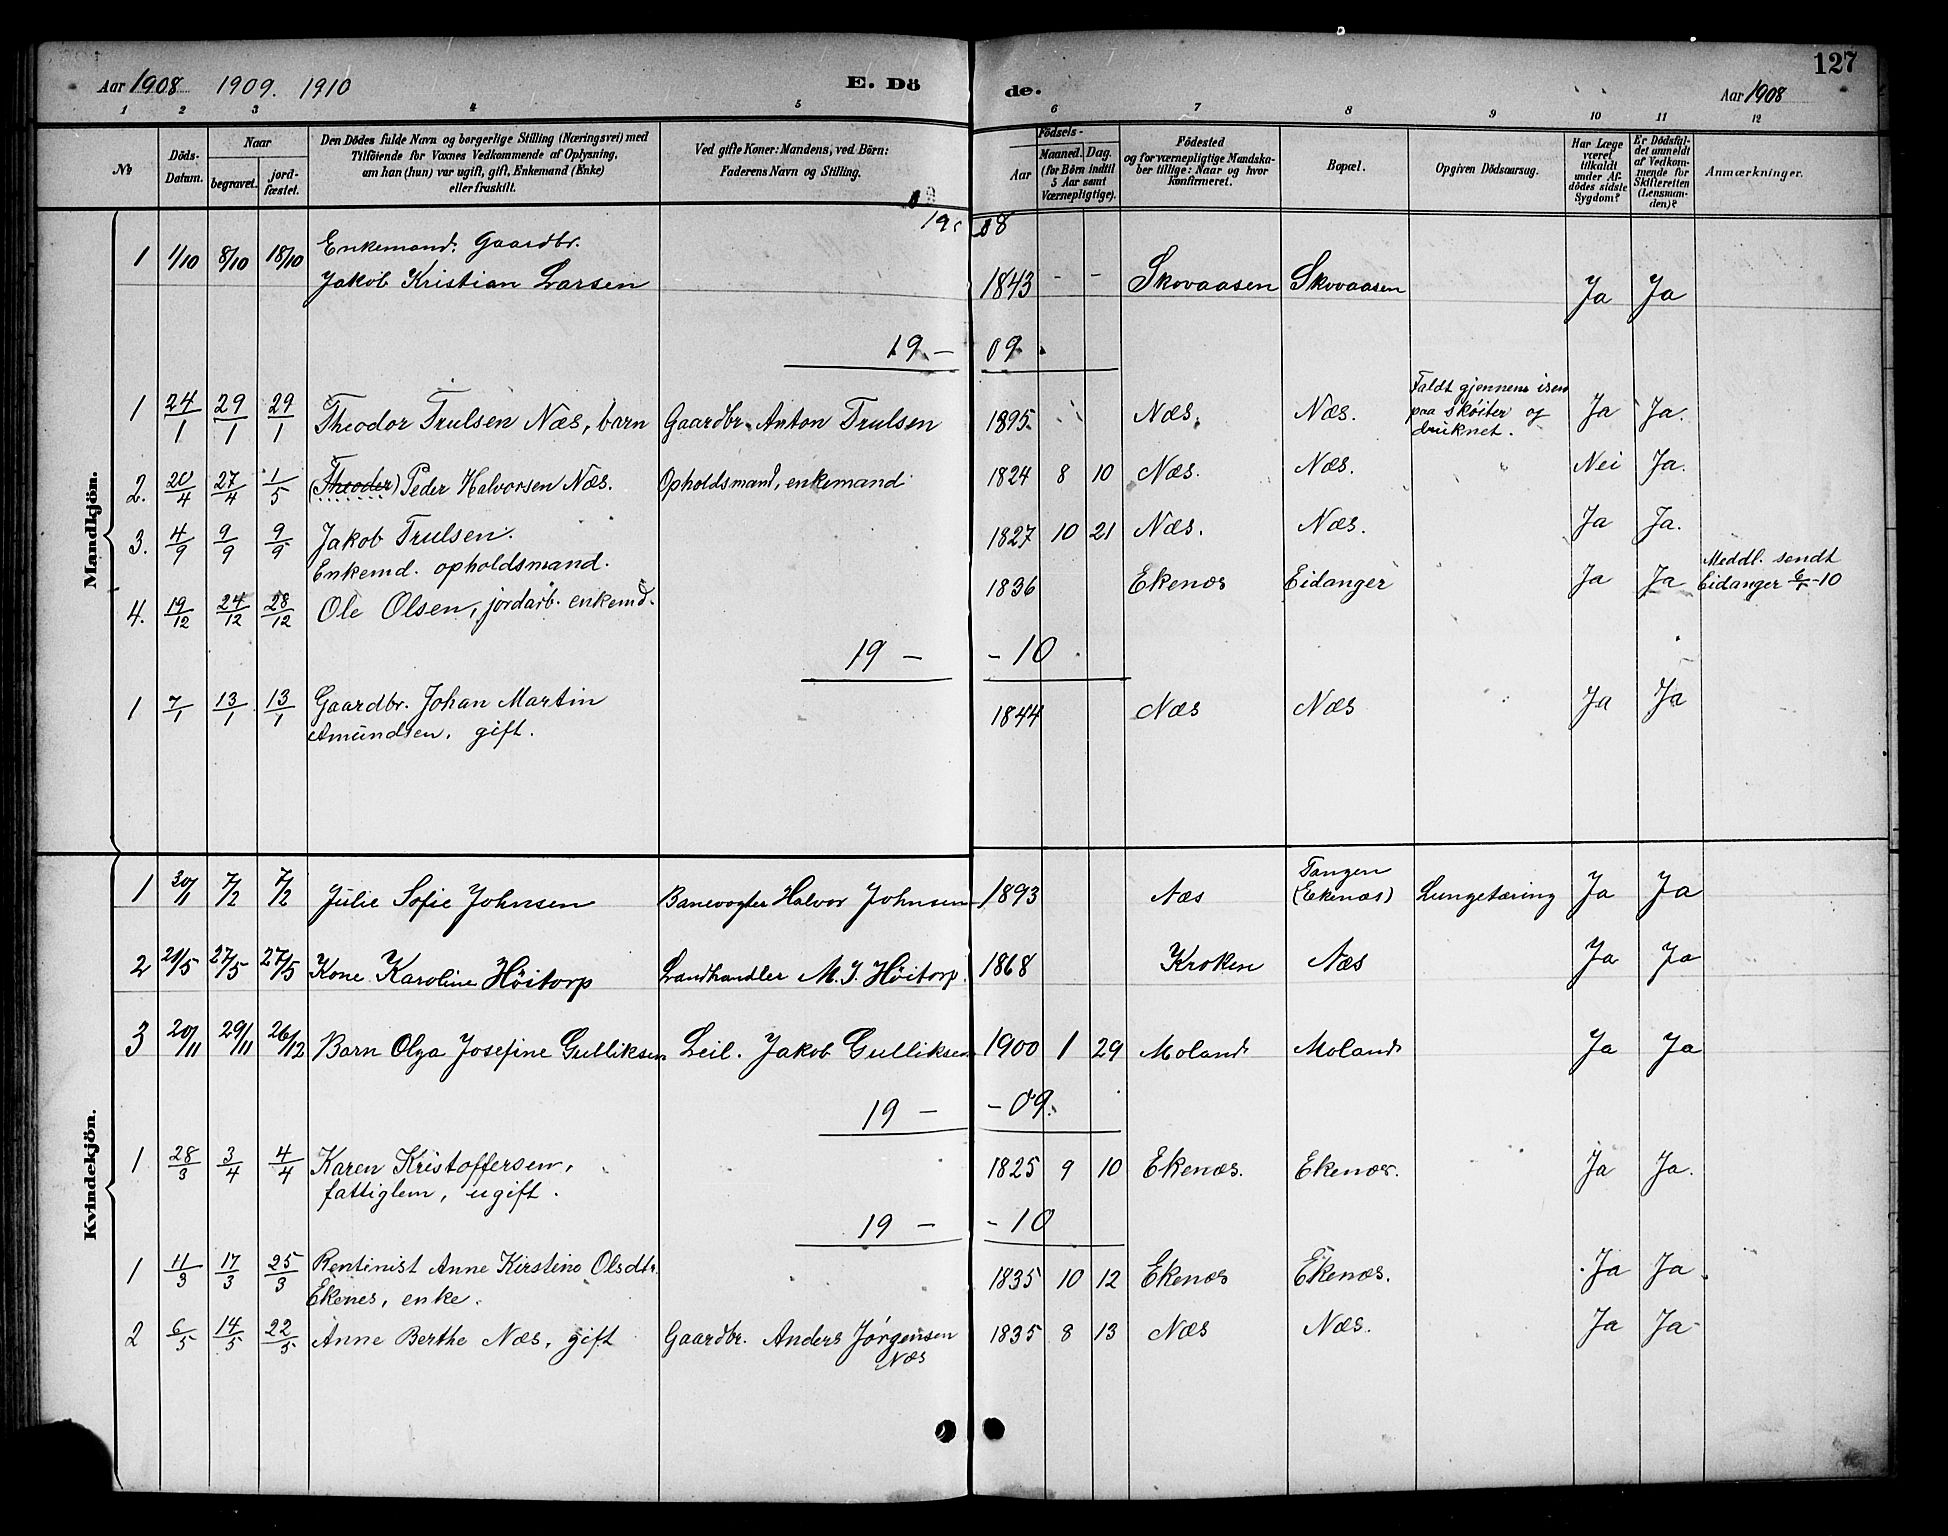 127
Aar 1908 1909. 1910 E. Dö de. Aar 1908
1 2 3 4 5 6 7 8 9 10 11 12
No
Döds-Datum.
Naar
begravet.
jordfæstet.
Den Dödes fulde Navn og borgerlige Stilling (Næringsvei) med
Tilföiende for Voxnes Vedkommende af Oplysning,
om han (hun) var ugift, gift, Enkemand (Enke)
eller fraskilt.
Ved gifte Koner: Mandens, ved Börn:
Faderens Navn og Stilling.
Födsels-
Aar
Maaned. Dag.
(for Börn indtil
5 Aar samt
Værnepligtige).
Födested
og for værnepligtige Mandska-
ber tillige: Naar og hvor
konfirmeret.
Bopæl.
Opgiven Dödsaarsag.
Har Læge
været
tilkaldt
under Af-
dödes sidste
Sygdom?
Er Dödsfal-
det anmeldt
af Vedkom-
mende for
Skifteretten
(Lensman-
den)?
Anmærkninger.
Mandkjön.
19 08
1 1/10 8/10 18/10 Enkemand. Gaardbr.
Jakob Kristian Larsen 1843 - - Skovaasen Skovaasen Ja Ja
19 - 09
1 24/1 29/1 29/1 Theodor Trulsen Næs, barn Gaardbr. Anton Trulsen 1895 Næs. Næs. Faldt gjennem isen
paa skøiter og
druknet. Ja Ja.
2. 20/4 27/4 1/5 (Theoder) Peder Halvorsen Næs. Opholdsmand, enkemand 1824 8 10 Næs. Næs. Nei Ja.
3. 4/9 9/9 9/9 Jakob Trulsen.
Enkemd. opholdsmand. 1827 10 21 Næs. Næs. Ja Ja.
4. 19/12 24/12 28/12 Ole Olsen, jordarb. enkemd. 1836 Ekenæs Eidanger Ja Ja Meddl. sendt
Eidanger 6/1-10
19 - - 10
1 7/1 13/1 13/1 Gaardbr. Johan Martin
Amundsen, gift. 1844 Næs Næs Ja Ja
Kvindekjön.
1 30/1 7/2 7/2 Julie Sofie Johnsen Banevogter Halvor Johnsen 1893 Næs Tangen
(Ekenæs) Lungetæring Ja Ja
2 21/5 27/5 27/5 Kone Karoline Höitorp Landhandler M. J. Höitorp. 1868 Kroken Næs Ja Ja
3 20/11 29/11 26/12 Barn Olga Josefine Gulliksen Leil. Jakob Gulliksen 1900 1 29 Moland Moland Ja Ja
19 - - 09.
1 28/3 3/4 4/4 Karen Kristoffersen,
fattiglem, ugift. 1825 9 10 Ekenæs. Ekenæs. Ja Ja.
19 - - 10
1 11/3 17/3 25/3 Rentinist Anne Kirstine Olsdtr.
Ekenes, enke. 1835 10 12 Ekenæs Ekenæs. Ja Ja
2 6/5 14/5 22/5 Anne Berthe Næs, gift Gaardbr. Anders Jørgensen
Næs 1835 8 13 Næs Næs. Ja Ja